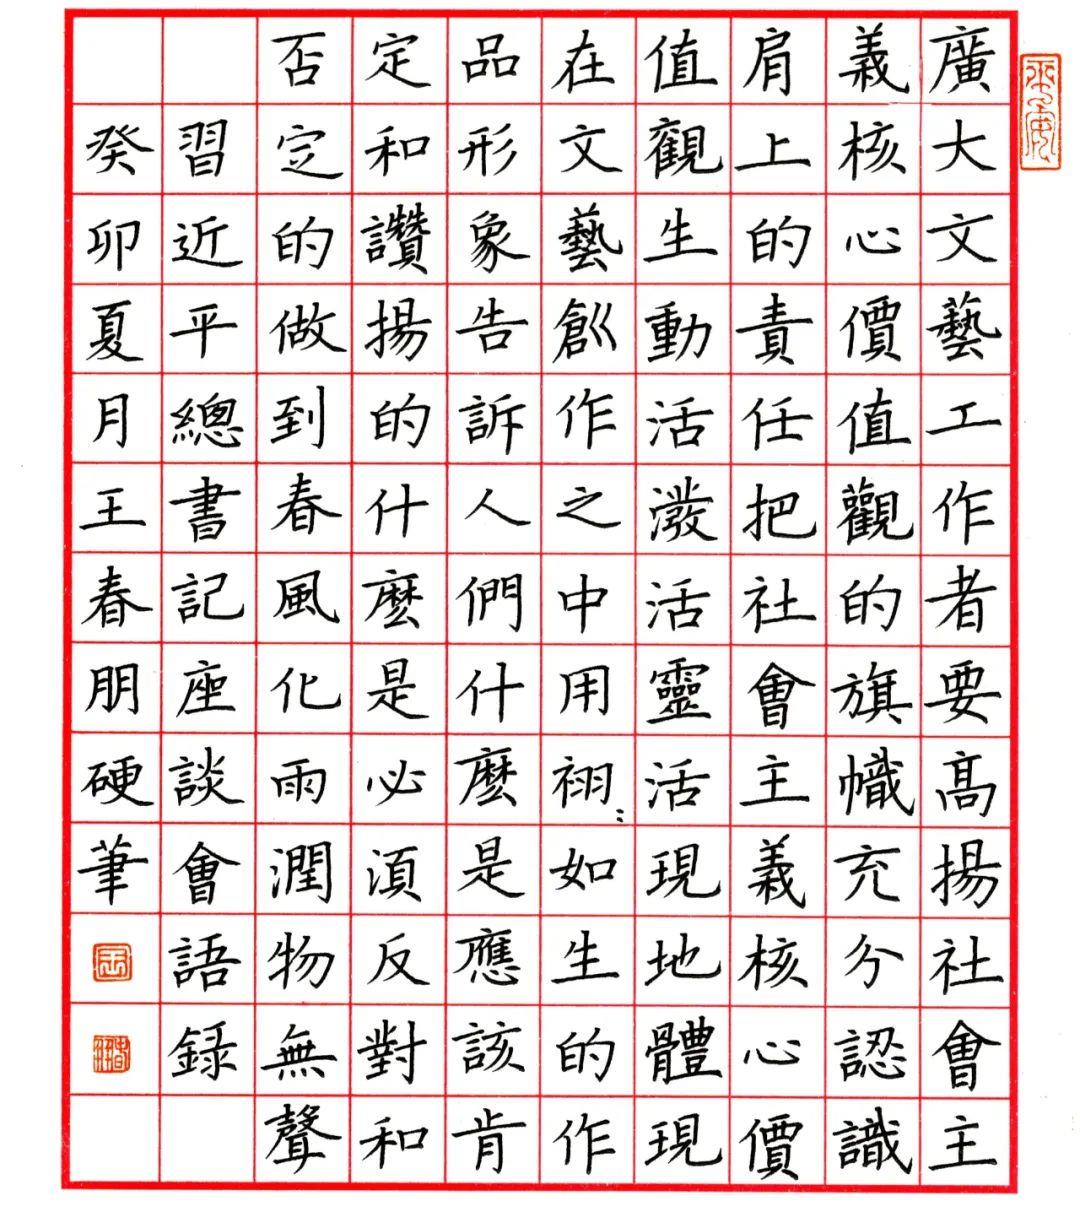 廣大文藝工作者要高揚社會主
義核心價值觀的旗幟充分認識
肩上的責任把社會主義核心價
值觀生動活潑活靈活現地體現
在文藝創作之中用栩〻如生的作
品形象告訴人們什麼是應該肯
定和讚揚的什麼是必須反對和
否定的做到春風化雨潤物無聲
習近平總書記座談會語錄
癸卯夏月王春朋硬筆